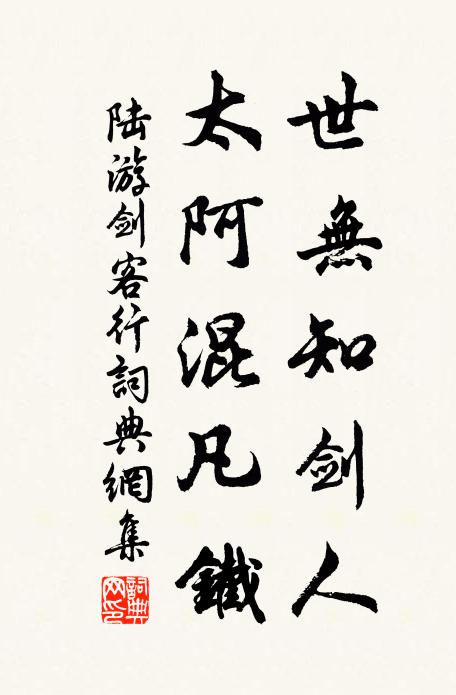 世無知劍人
太阿混凡鐵
陆游剑客行詞典網集
詞典网印